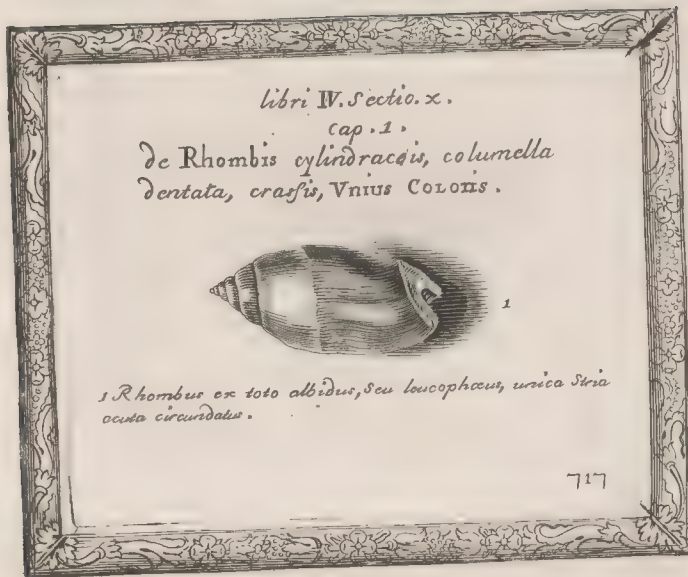 libri IV. Sectio. x.
Cap. 1.
de Rhombis cylindraceis, columella
dentata, crassis, Vnius Coloris.
1
1 Rhombus ex toto albidus, Seu leucophæus, unica Stria
acuta circundatus.
717